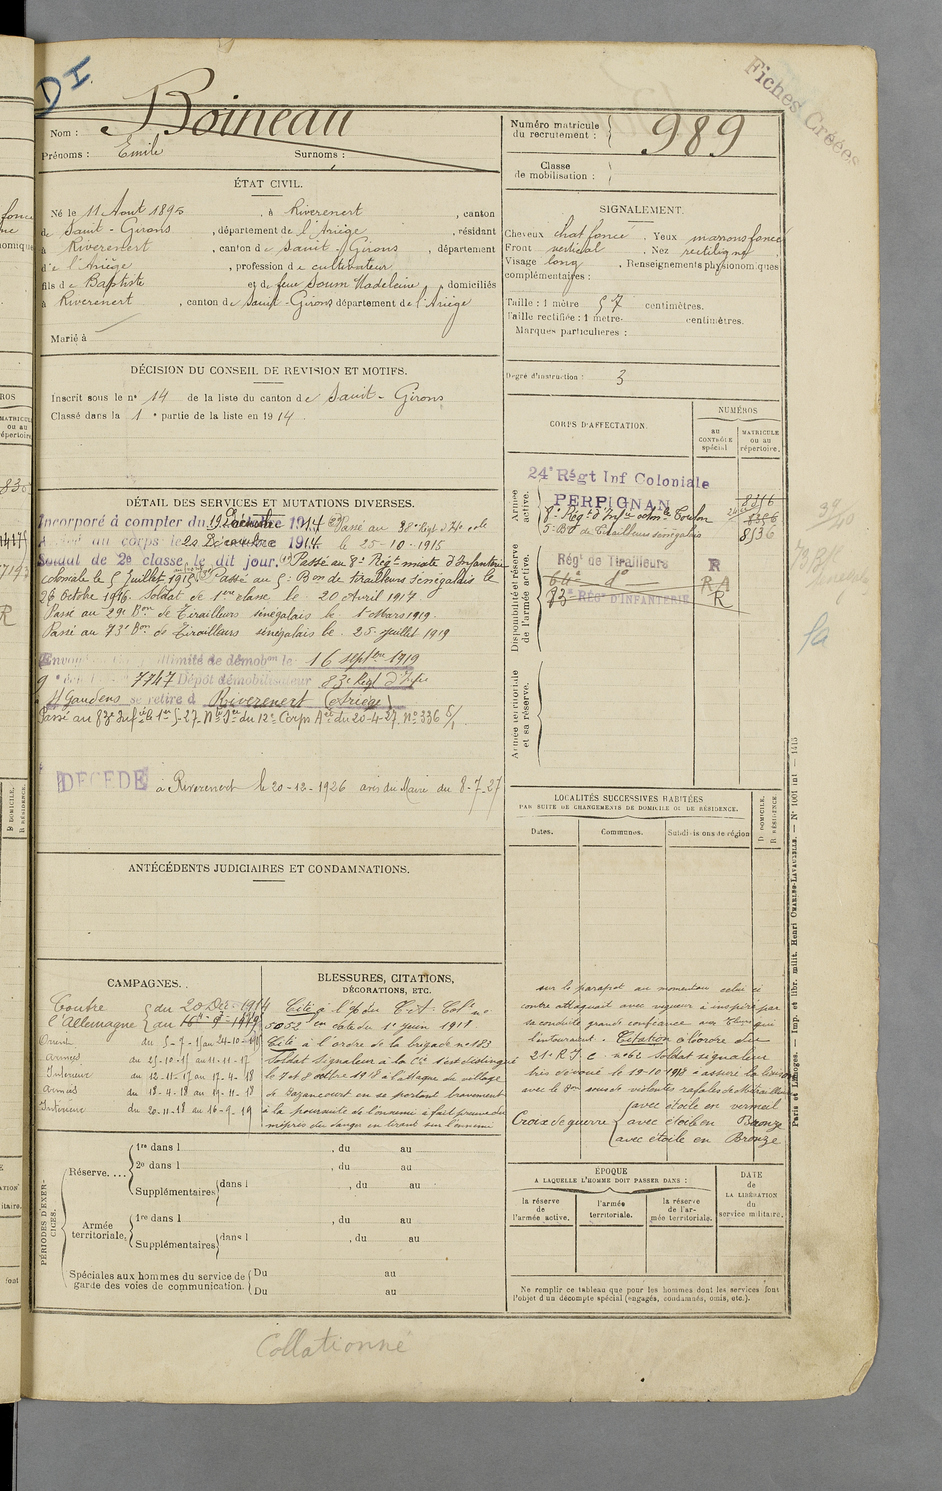 DI
Fiches Créées
Nom : Boineau
Prénoms : Emile Surnoms :
Numéro matricule du recrutement : 989
Classe de mobilisation :
ÉTAT CIVIL.
Né le 11 Aout 1895, à Riverenert, canton
de Saint-Girons, département de l'Ariège, résidant
à Riverenert, canton de Saint-Girons, département
de l'Ariège, profession de cultivateur
fils de Baptiste et de feue Soum Madeleine, domiciliés
à Riverenert, canton de Saint-Girons département de l'Ariège
Marié à
SIGNALEMENT.
Cheveux chat foncé. Yeux marrons foncé
Front vertical. Nez rectiligne
Visage long. Renseignements physionomiques
complémentaires :
Taille : 1 mètre 57 centimètres.
Taille rectifiée : 1 mètre centimètres.
Marques particulières :
Degré d'instruction : 3
DÉCISION DU CONSEIL DE REVISION ET MOTIFS.
Inscrit sous le n° 14 de la liste du canton de Saint-Girons
Classé dans la 1e partie de la liste en 1914.
CORPS D'AFFECTATION.
NUMÉROS
au CONTRÔLE spécial
MATRICULE ou au répertoire.
Armée active.
24e Régt Inf Coloniale
PERPIGNAN
8e Régt d'Infie Colole Toulon
5e Bon de Tirailleurs sénégalais 8536
Disponibilité et réserve de l'armée active.
Régt de Tirailleurs R
64e do RA
93e RÉGt D'INFANTERIE R
Armée territoriale et sa réserve.
DÉTAIL DES SERVICES ET MUTATIONS DIVERSES.
Incorporé à compter du 19 Décembre 1914 Passé au 38e Regt d'Ie cole
au corps le 20 Décembre 1914. le 25-10-1915
Soldat de 2e classe le dit jour. Passé au 8e Régt mixte d'Infanterie
coloniale le 5 Juillet 1916 Passé au 5e Bon de tirailleurs sénégalais le
26 Octobre 1916. Soldat de 1ere classe le 20 Avril 1917
Passé au 29e Bon de Tirailleurs sénégalais le 1er Mars 1919.
Passé au 73e Bon de Tirailleurs sénégalais le 25 juillet 1919
Envoyé illimité de démobon le 16 septbre 1919
9e 7747 Dépôt démobilisateur 83e Regt d'Infie
St Gaudens se retire à Riverenert (Ariège)
Passé au 83e Infie le 1er 5-27. Non Sce du 12e Corps Aée du 20-4-27. No 336 5/1
DÉCÉDÉ à Riverenert le 20-12-1926 avis du Maire du 8-7-27
LOCALITÉS SUCCESSIVES HABITÉES
PAR SUITE DE CHANGEMENTS DE DOMICILE OU DE RÉSIDENCE.
Dates. Communes. Subdivisions de région
D. DOMICILE. R. RÉSIDENCE
ANTÉCÉDENTS JUDICIAIRES ET CONDAMNATIONS.
CAMPAGNES.
Contre l'Allemagne du 20 Déc. 1914 au 16-9-1919
Orient du 5-7-15 au 24-10-1915
Armées du 25-10-15 au 11-11-17
Intérieur du 12-11-17 au 17-4-18
Armées du 18-4-18 au 19-11-18
Intérieur du 20-11-18 au 16-9-19
BLESSURES, CITATIONS,
DÉCORATIONS, ETC.
Cité à l'O du Rt Colal no
5052 en date du 1er Juin 1918
Cité à l'ordre de la brigade no 183
Soldat signaleur à la Cie s'est distingué
le 7 et 8 octbre 1918 à l'attaque du village
de Bazancourt en se portant bravement
à la poursuite de l'ennemi a fait preuve du
mépris du danger en tirant sur l'ennemi
sur le parapet au moment où celui ci
contre attaquait avec vigueur a inspiré par
sa conduite grande confiance aux qui
l'entouraient. Citation à l'ordre du
21e R.I.C. no 62 Soldat signaleur
très dévoué le 19-10-1918 a assuré la liaison
avec le Bon sous de violentes rafales de Mitrailleuses
Croix de guerre avec étoile en vermeil
avec étoile en Bronze
avec étoile en Bronze
PÉRIODES D'EXERCICES.
Réserve.... 1re dans l , du au
2e dans l , du au
Supplémentaires dans l , du au
Armée territoriale. 1re dans l , du au
Supplémentaires dans l , du au
Spéciales aux hommes du service de garde des voies de communication. Du au
Du au
ÉPOQUE
A LAQUELLE L'HOMME DOIT PASSER DANS :
la réserve de l'armée active.
l'armée territoriale.
la réserve de l'armée territoriale.
DATE de LA LIBÉRATION du service militaire.
Ne remplir ce tableau que pour les hommes dont les services font
l'objet d'un décompte spécial (engagés, condamnés, omis, etc.).
Paris et Limoges. — Imp. et libr. milit. Henri CHARLES-LAVAUZELLE. — N° 1001 int — 1415
Collationné